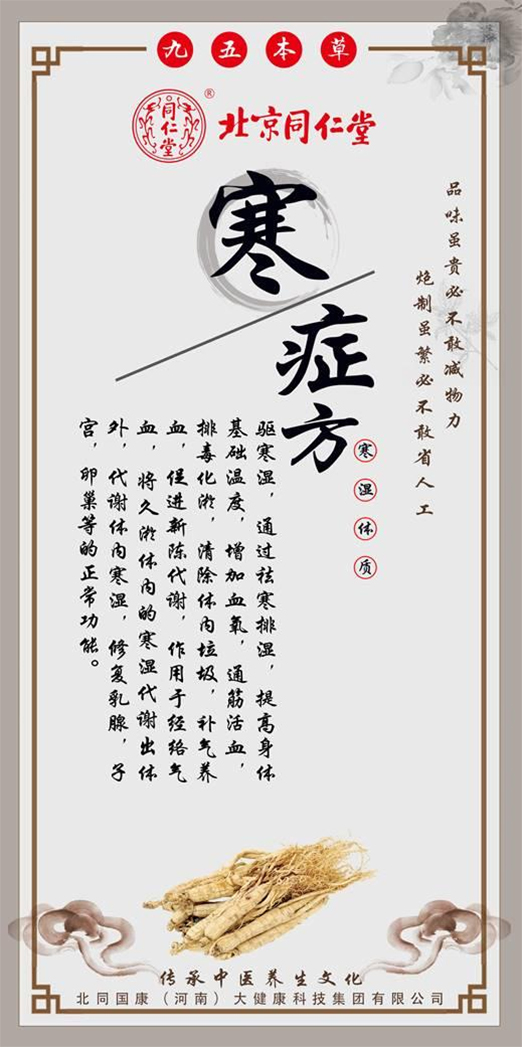 九五本草
同仁堂
®
北京同仁堂
寒
症方
品味虽贵必不敢减物力
炮制虽繁必不敢省人工
寒湿体质
驱寒湿，通过祛寒排湿，提高身体
基础温度，增加血氧，通筋活血，
排毒化淤，清除体内垃圾，补气养
血，促进新陈代谢，作用于经络气
血，将久淤体内的寒湿代谢出体
外，代谢体内寒湿，修复乳腺，子
宫，卵巢等的正常功能。
传承中医养生文化
北同国康（河南）大健康科技集团有限公司